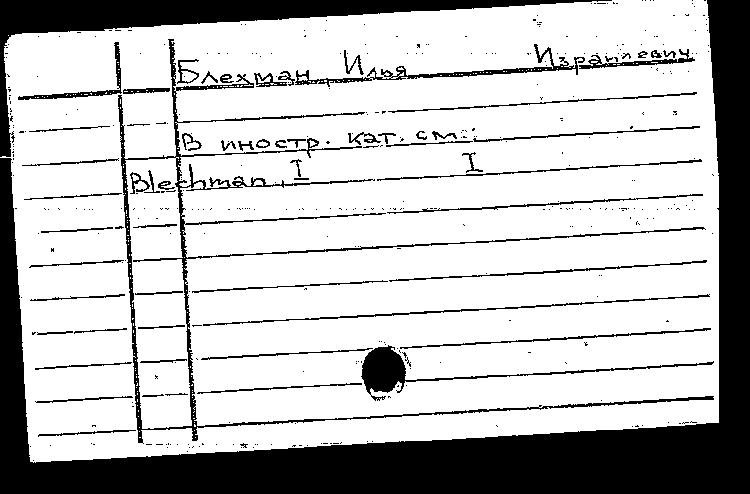 Блехман, Илья Израилевич
В иностр. кат. см.:
Blechman, I I